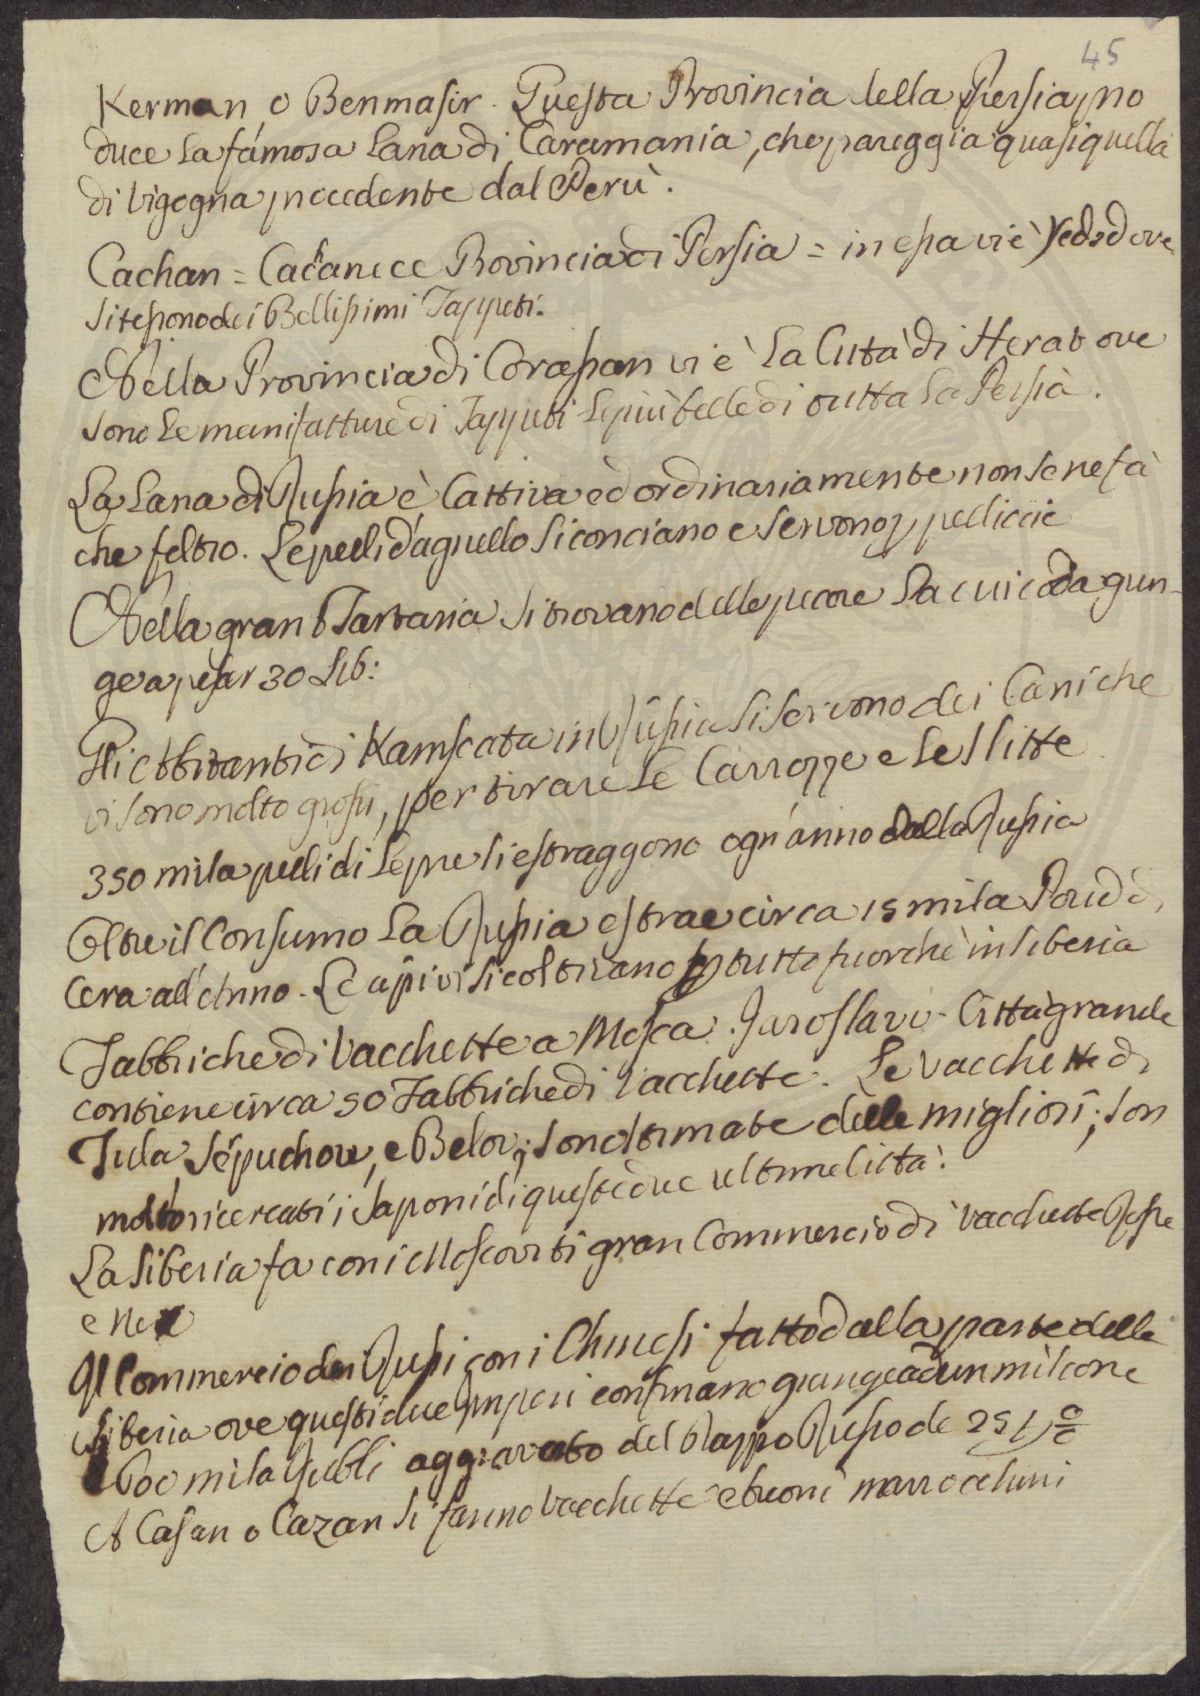 45
Kerman, o Benmasir. Questa Provincia della Persia pro
duce la famosa Lana di Caramania, che pareggia quasi quella
di Vigogna procedente dal Perù.
Cachan = Provincia di Persia = in essa vi è Yedsd ove
si tessono dei Bellissimi Tappeti.
Nella Provincia di Corassan vi è la Città di Herat ove
sono le manifatture di Tappeti le piu belle di tutta la Persia.
La Lana di Russia è Cattiva ed ordinariamente non se ne fà
che feltro. Le pelli d'agnello si conciano e servono p pelliccie
Nella gran Tartaria si trovano delle pecore la cui coda giun-
ge a pesar 30 Lib:
Gli Abitanti di Kamscata in Russia si servono dei Cani che
vi sono molto grossi, per tirare le Carrozze e le slitte
350 mila pelli di Lepre si estraggono ogn'anno dalla Russia
Oltre il Consumo la Russia estrae circa 15 mila Poud di
Cera all'Anno. Le api vi si coltivano p tutto fuorchè in Siberia
Fabbriche di Vacchette a Mosca. Jaroslavv. Città grande
contiene circa 50 Fabbriche di Vacchette. Le Vacchette di
Tula Sepuchow, e Belov; sono stimate delle migliori; son
molto ricercati i Saponi di queste due ultime Città.
La Siberia fa con i Moscoviti gran Commercio di Vacchette Rosse
e Nere
Il Commercio dei Russi con i Chinesi fatto dalla parte della
Siberia ove questi due Imperi confinano giunge ad un milione
mila Rubli aggravato del Russo de 25 p %
A Casan o Cazan si fanno Vacchette e buoni marrocchini